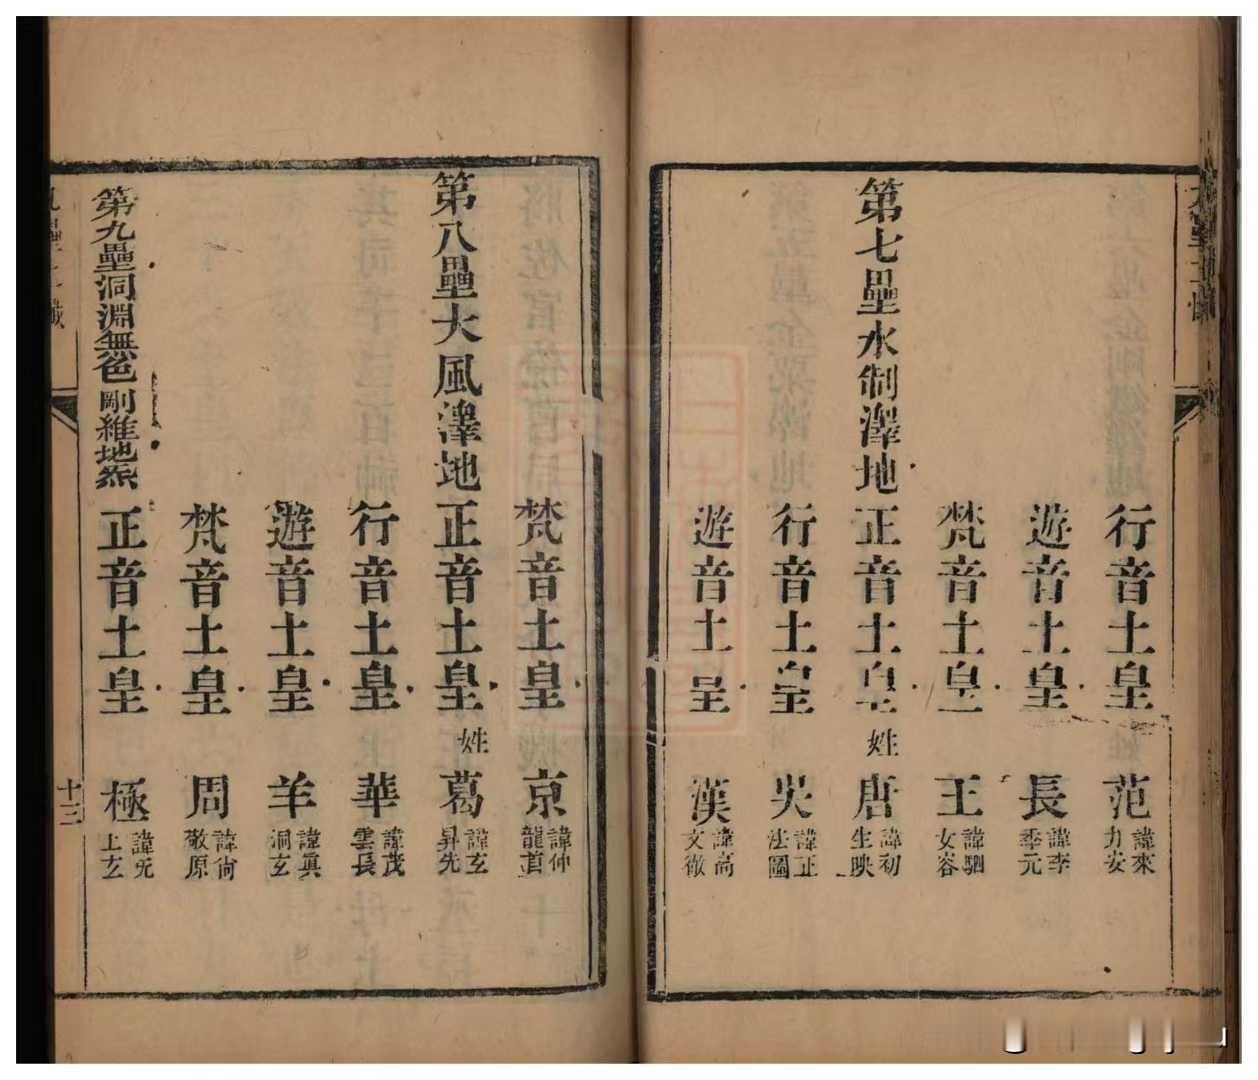 行音土皇 范 諱來力安
遊音土皇 長 諱李季元
梵音土皇 王 諱駟女容
第七壘水制澤地 正音土皇 姓唐 諱初生映
行音土皇 吳 諱正法圖
遊音土皇 漢 諱高文徹
梵音土皇 京 諱仲龍首
第八壘大風澤地 正音土皇 姓葛 諱玄昇先
行音土皇 華 諱茂雲長
遊音土皇 羊 諱真洞玄
梵音土皇 周 諱尚敬原
第九壘洞淵無色剛維地炁 正音土皇 極 諱无上玄
十三